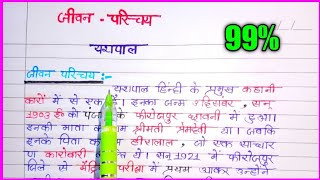 जीवन - परिचय
99%
यशपाल
जीवन परिचय :-
यशपाल हिन्दी के प्रमुख कहानी
कारों में से एक हैं। इनका जन्म दिसंबर, सन्
1903 ई० को पंजाब के फीरोजपुर छावनी में हुआ।
इनकी माता का नाम श्रीमती प्रेमदेवी था। जबकि
इनके पिता का नाम हीरालाल, जो एक साधार
ण कारोबारी थे। सन् 1921 में फीरोजपुर
जिले से मैट्रिक परीक्षा में प्रथम आकर उन्होंने